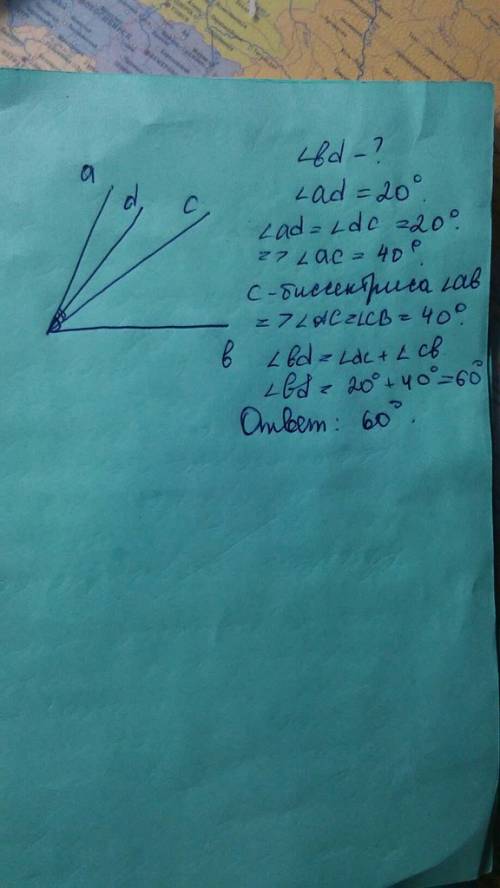 a
d
c
∠bd - ?
∠ad = 20°.
∠ad = ∠dc = 20°.
=> ∠ac = 40°.
c - биссектриса ∠ab
=> ∠ac = ∠cb = 40°.
b
∠bd = ∠dc + ∠cb
∠bd = 20° + 40° = 60°
Ответ: 60°.